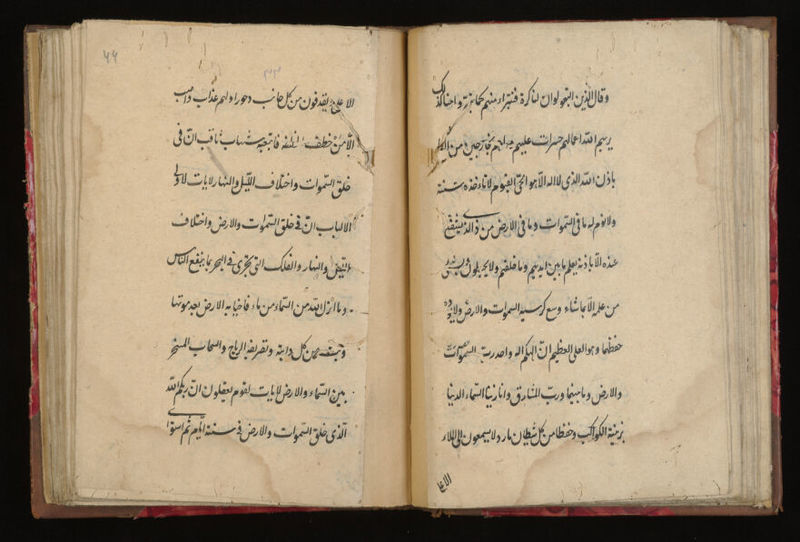 وقال الذين اتبعوا لو ان لنا كرة فنتبراء منهم كما تبرؤا منا كذلك
يريهم الله اعمالهم حسرات عليهم وما هم بخارجين من النار
باذن الله الذى لا اله الا هو الحى القيوم لا تاءخذه سنة
ولا نوم له ما فى السموات وما فى الارض من ذى الذى يشفع
عنده الا باذنه يعلم ما بين ايديهم وما خلفهم ولا يحيطون بشئ
من علمه الا بما شاء وسع كرسيه السموات والارض ولا يؤده
حفظهما وهو العلى العظيم ان الهكم اله واحد رب السموات
والارض وما بينهما ورب المشارق وانا زينا السماء الدنيا
بزينة الكواكب وحفظا من كل شيطان مارد لا يسمعون الى الملاء
الاعلى
٤٤
الاعلى ويقذفون من كل جانب دحورا ولهم عذاب واصب
الا من خطف الخطفة فاتبعه شهاب ثاقب ان فى
خلق السموات واختلاف الليل والنهار لايات لاولى
الالباب ان فى خلق السموات والارض واختلاف
الليل والنهار والفلك التى تجرى فى البحر بما ينفع الناس
وما انزل الله من السماء من ماء فاحيا به الارض بعد موتها
وبث فيها من كل دابة وتصريف الرياح والسحاب المسخر
بين السماء والارض لايات لقوم يعقلون ان ربكم الله
الذى خلق السموات والارض فى ستة ايام ثم استوى